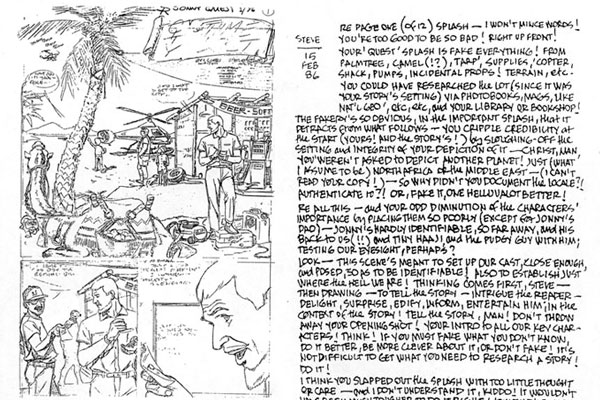 TO JONNY QUEST 1/86 1
BEER - SOFT
STEVE
15
FEB
86
RE PAGE ONE (OF 12) SPLASH — I WON'T MINCE WORDS!
YOU'RE TOO GOOD TO BE SO BAD! RIGHT UP FRONT!
YOUR 'QUEST' SPLASH IS FAKE EVERYTHING! FROM
PALMTREE, CAMEL (!?), TARP, SUPPLIES, 'COPTER,
SHACK, PUMPS, INCIDENTAL PROPS! TERRAIN, etc.
YOU COULD HAVE RESEARCHED THE LOT (SINCE IT WAS
YOUR STORY'S SETTING) VIA PHOTOBOOKS, MAGS, LIKE
NAT'L GEO', etc etc, and YOUR LIBRARY OR BOOKSHOP!
THE FAKERY'S SO OBVIOUS, IN the IMPORTANT SPLASH, that IT
DETRACTS from WHAT FOLLOWS — YOU CRIPPLE CREDIBILITY AT
the START (YOURS! and the STORY'S!) by SLOUGHING-OFF the
SETTING and INTEGRITY OF YOUR DEPICTION OF IT — CHRIST, MAN
YOU WEREN'T ASKED TO DEPICT ANOTHER PLANET! JUST (WHAT
I ASSUME to be) NORTH AFRICA OR the MIDDLE EAST — (I CAN'T
READ YOUR COPY!) — SO WHY DIDN'T YOU DOCUMENT the LOCALE?!
AUTHENTICATE IT?! OR, FAKE IT, ONE HELLUVALOT BETTER!
RE ALL THIS — and YOUR ODD DIMINUTION OF the CHARACTERS'
IMPORTANCE by PLACING THEM SO POORLY (EXCEPT FOR JONNY'S
DAD) — JONNY'S HARDLY IDENTIFIABLE, SO FAR AWAY, and HIS
BACK TO US (!!) and TINY HAAJI and the PUDGY GUY WITH HIM;
TESTING OUR EYESIGHT, PERHAPS?
LOOK — THIS SCENE'S MEANT TO SET UP OUR CAST, CLOSE ENOUGH,
and POSED, SO AS TO BE IDENTIFIABLE! ALSO TO ESTABLISH JUST
WHERE the HELL WE ARE! THINKING COMES FIRST, STEVE —
THEN DRAWING — TO TELL the STORY — INTRIGUE the READER —
DELIGHT, SURPRISE, EDIFY, INFORM, ENTERTAIN HIM; IN the
CONTENT OF the STORY! TELL the STORY, MAN! DON'T THROW
AWAY YOUR OPENING SHOT! YOUR INTRO TO ALL OUR KEY CHAR-
ACTERS! THINK! IF YOU MUST FAKE WHAT YOU DON'T KNOW,
DO IT BETTER, BE MORE CLEVER ABOUT IT, OR DON'T FAKE! IT'S
NOT DIFFICULT TO GET WHAT YOU NEED TO RESEARCH A STORY!
DO IT!
I THINK YOU SLAPPED OUT the SPLASH WITH TOO LITTLE THOUGHT
OR CARE — and I DON'T UNDERSTAND IT, KIDDO! IT WOULDN'T